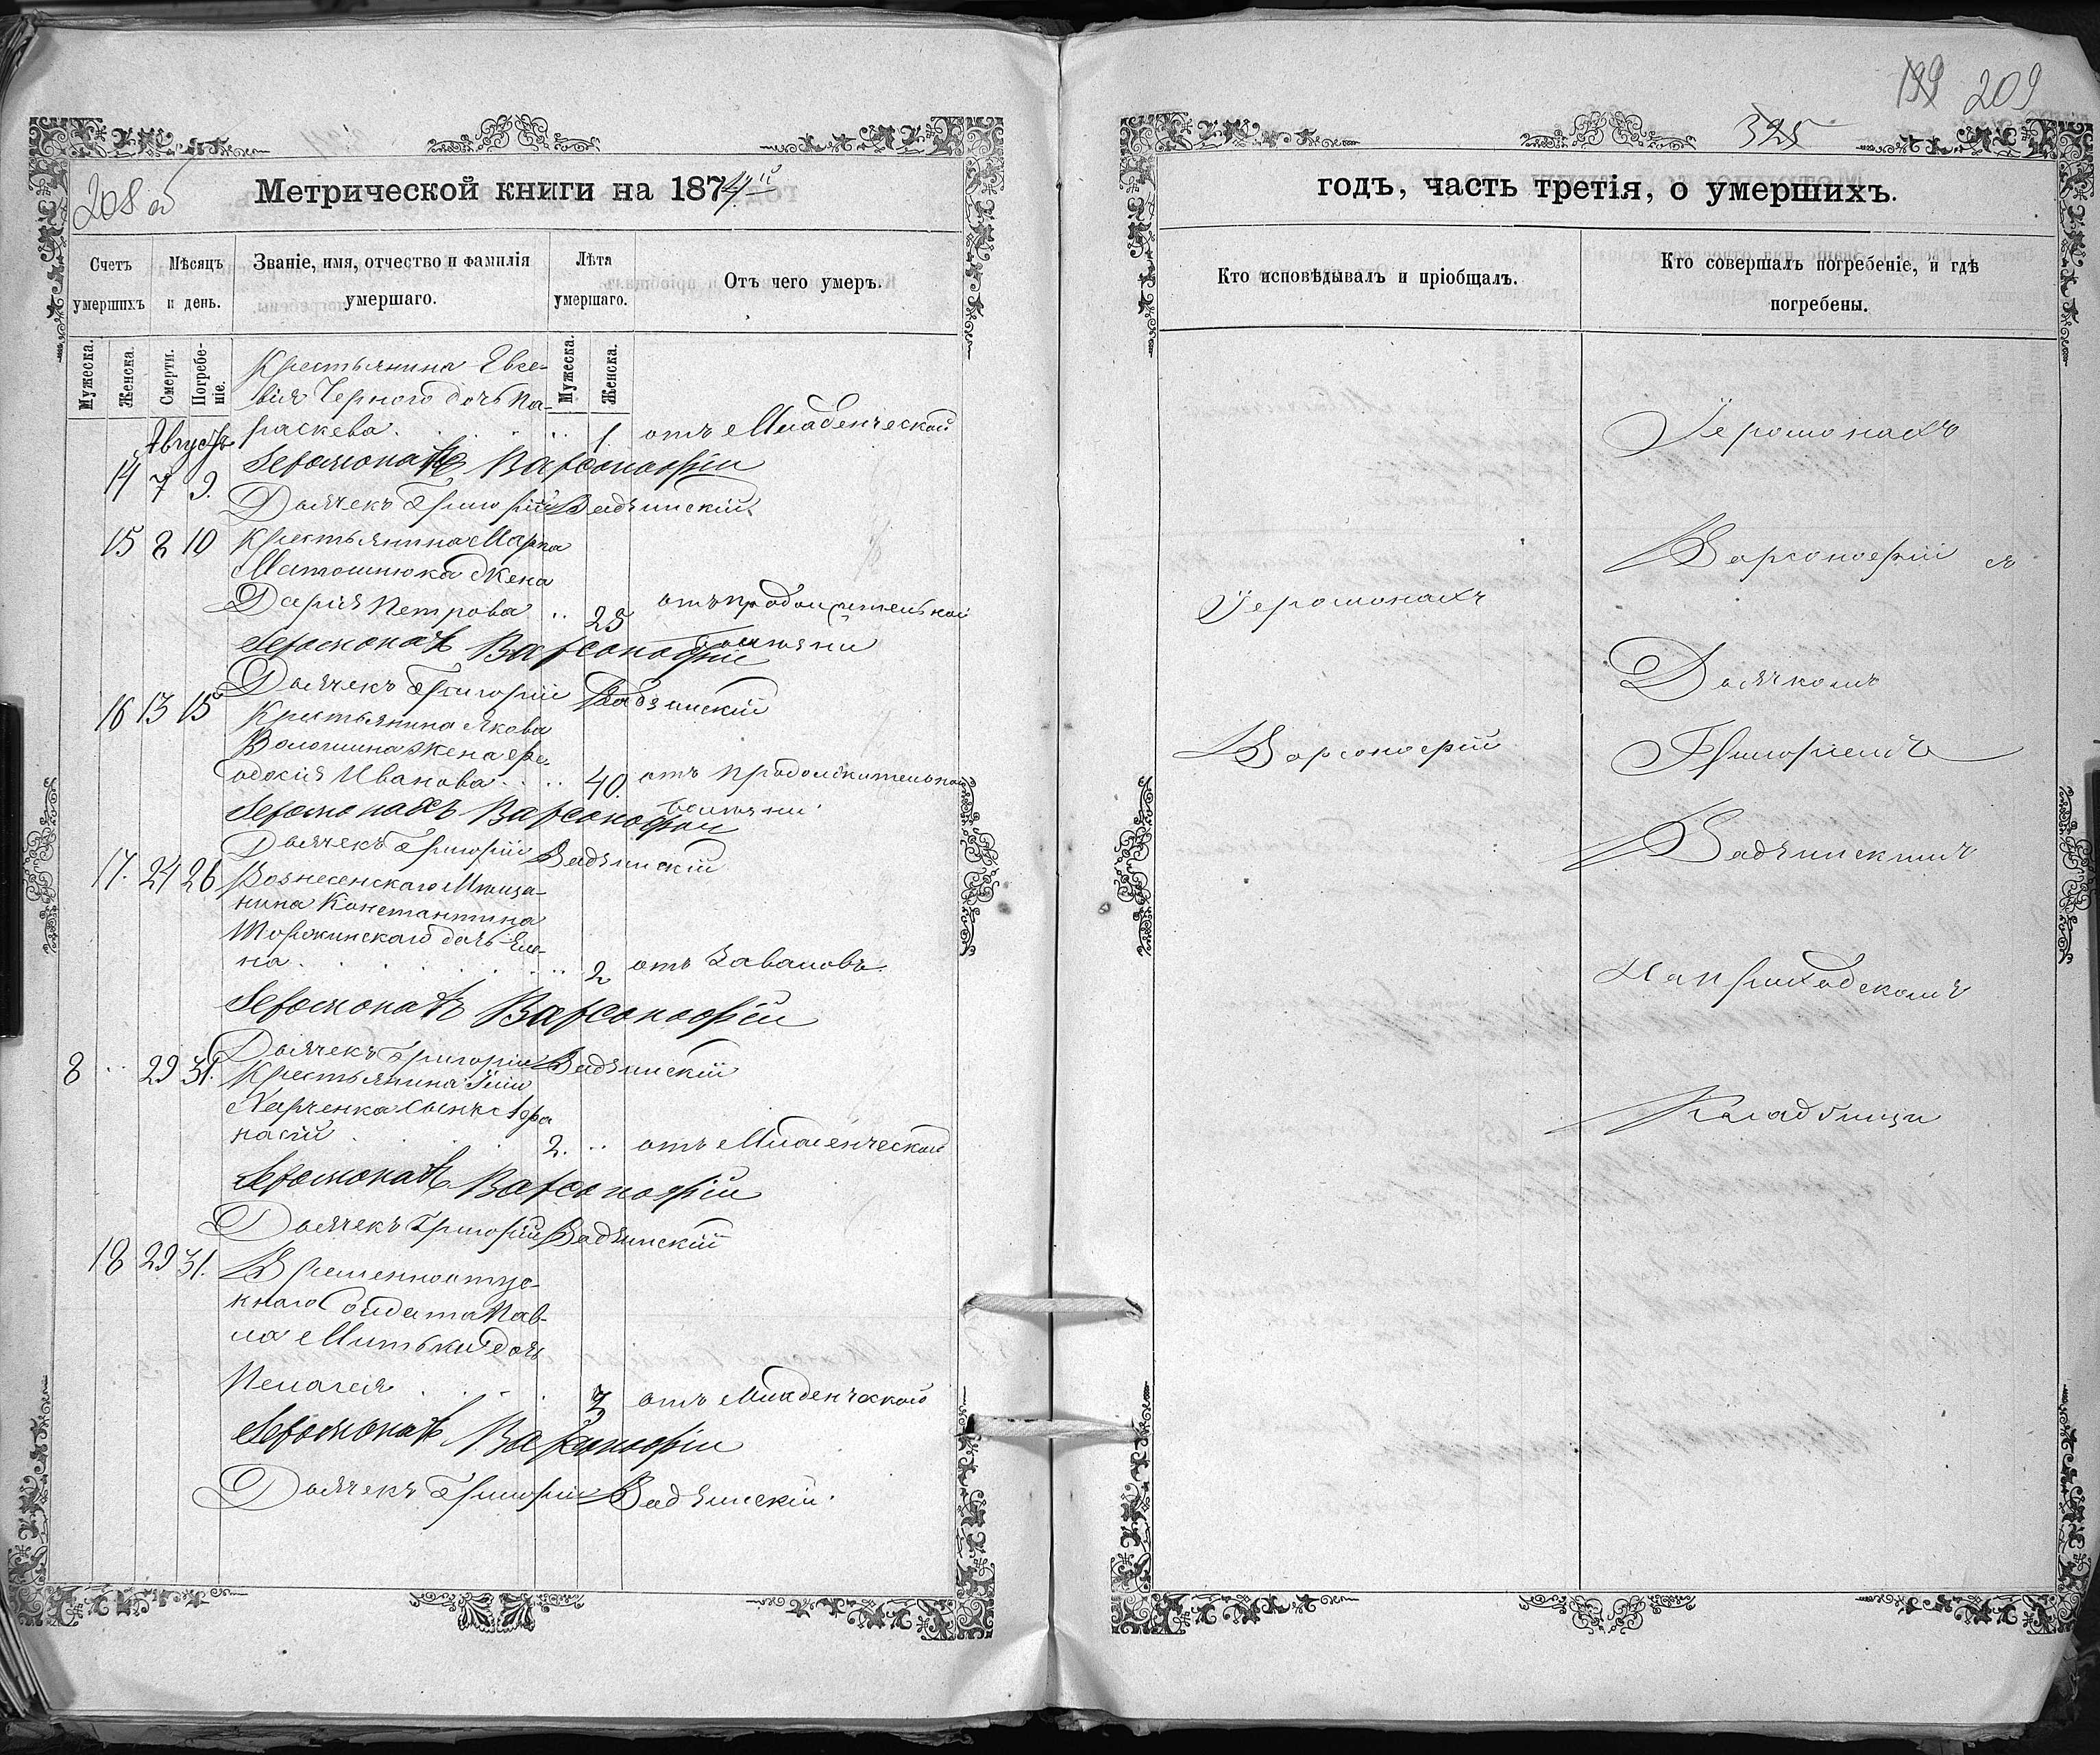 208 об
Метрической книги на 1874й
Счетъ умершихъ
Мѣсяцъ и день.
Званіе, имя, отчество и фамилія умершаго.
Лѣта умершаго.
Отъ чего умеръ.
Мужеска.
Женска.
Смерти.
Погребе-
ніе.
Мужеска.
Женска.
Августъ
Крестьянина Евсе-
вія Чернаго дочь Па-
14 7 9. раскева . . . . 1. отъ Младенческой
Іеромонахъ Варсонофій
Дьячекъ Григорій Вадзинскій
15 8 10 Крестьянина Марка
Матошнюка жена
Дарія Петрова .. 25 отъ продолжительной
болѣзни
Іеромонахъ Варсонофій
Дьячекъ Григорій Вадзинскій
16 13 15 Крестьянина Якова
Волошина жена Фе-
одосія Иванова . . . 40. отъ продолжительной
болѣзни
Іеромонахъ Варсонофій
Дьячекъ Григорій Вадзинскій
17. 24 26 Вознесенскаго Мѣща-
нина Константина
дочь Еле-
на . . . . . 2 отъ Заваловъ.
Іеромонахъ Варсонофій
Дьячекъ Григорій Вадзинскій
8 .. 29 31. Крестьянина
Харченка сынъ Афа
насій . . . 2. .. отъ Младенческой
Іеромонахъ Варсонофій
Дьячекъ Григорій Вадзинскій
18 29 31. Временноотпу-
кнаго Солдата Пав-
ла Митьки дочь
Пелагея . . . . отъ Младенческой
Іеромонахъ Варсонофій
Дьячекъ Григорій Вадзинскій.
199 209
325
годъ, часть третія, о умершихъ.
Кто исповѣдывалъ и пріобщалъ.
Кто совершалъ погребеніе, и гдѣ
погребены.
Іеромонахъ
Варсонофій
Іеромонахъ
Варсонофій съ
Дьячкомъ
Григоріемъ
Вадзинскимъ
На приходскомъ
Кладбищи